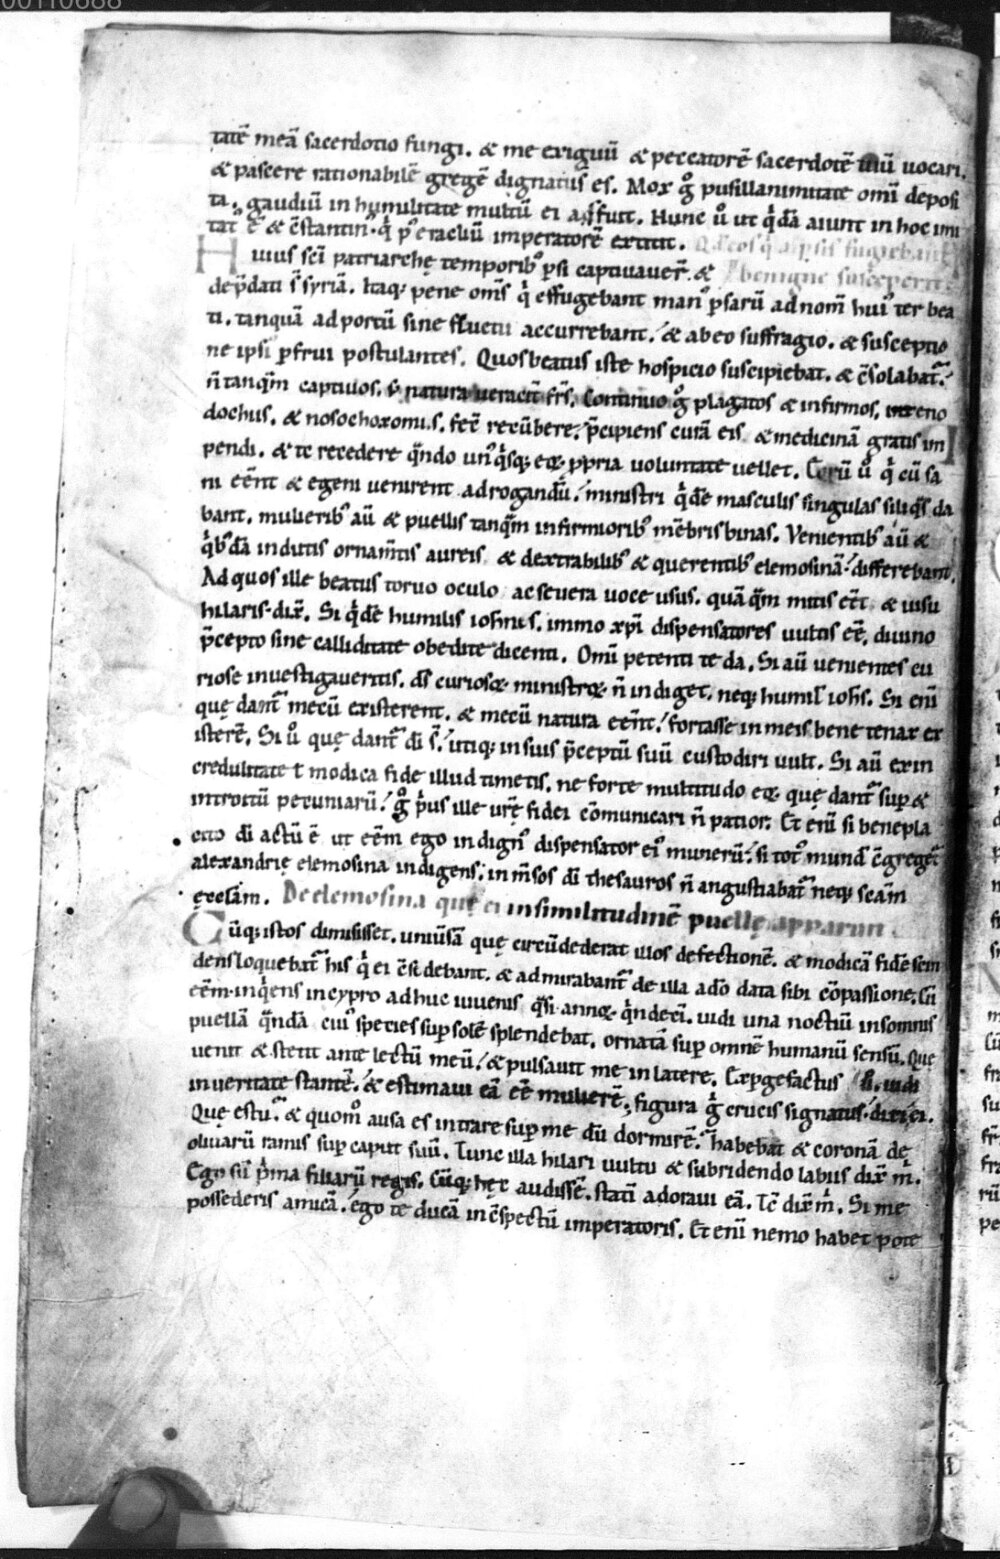 00110688
tatē meā sacerdotio fungi. & me exiguū & peccatorē sacerdotē tuū uocari.
& pascere rationabilē gregē dignatus es. Mox g̊ pusillanimitate omī deposi
ta, gaudiū in humilitate multū ei affuit. Hunc ů ut q̇dā aiunt in hoc imi
tat᷒ ē & c̄stantin᷒ q̇ p᷒ eracliū imperatorē extitit. fugiebant
Huius sc̄i patriarchę temporib᷒ ꝑsi captiuauer̄ & benigne susceperit
dep̄dati s̄ syriā. Itaq; pene om̄s q̇ effugebant man᷒ ꝑsarū ad nom̄ hui᷒ ter bea
ti, tanquā ad portū sine fluctu accurrebant, & ab eo suffragio, & susceptio
ne ipsi ꝑfrui postulantes. Quos beatus iste hospicio suscipiebat, & c̄solabat᷒,
n̄ tanq̄m captiuos, s; natura ueracit̄ fr̄s. Continuo g̊ plagatos & infirmos, in xeno
dochiis, & nosochoxomiis, fec̄ recūbere, p̄cipiens curā eis & medicinā gratis im
pendi, & tc̄ recedere q̄ndo un᷒q̇sq; eoꝝ ꝓpria uoluntate uellet. Ceterū ů q̇ cū sa
ni eēnt & egeni uenirent ad rogandū, ministri q̇dē masculis singulas siliq̄s da
bant, mulierib᷒ aū & puellis tanq̄m infirmiorib᷒ mēbris binas. Venientib᷒ aū &
q̇b᷒dā indutis ornam̄tis aureis & dextrabilib᷒ & querentib᷒ elemosinā, differebant.
Ad quos ille beatus toruo oculo ac seuera uoce usus, quā q̄m mitis eēt & uisu
hilaris, dix̄. Si q̇dē humilis ioh̄nis, immo xp̄i dispensatores uultis eē, diuino
p̄cepto sine calliditate obedite dicenti. Omī petenti te da. Si aū uenientes cu
riose inuestigaueritis, d̄s curiosoꝝ ministroꝝ n̄ indiget, neq; humil̄ ioh̄s. Si enī
quę dant᷒ mecū existerent, & mecū natura eēnt, fortasse in meis bene tenax ex
isterē. Si ů quę dant᷒ dī s̄, utiq; in suis p̄ceptū suū custodiri uult. Si aū ex in
credulitate ł modica fide illud timetis, ne forte multitudo eoꝝ quę dant᷒ suꝑ &
introitū pecuniarū, g̊ ṗus ille ur̄ę fidei cōmunicari n̄ patior. Et enī si benepla
cito dī actū ē ut eēm ego indign᷒ dispensator ei᷒ munerū, si tot᷒ mund᷒ c̄greget᷒
alexandrię elemosina indigens, inm̄sos dī thesauros n̄ angustiabat᷒ neq; sc̄am
ecclām. De elemosina quę ei in similitudinē puellę apparuit
Cūq; istos dimisisset, uniūsā quę circūdederat illos defectionē, & modicā fidē sem
dens loquebat᷒ his q̇ ei c̄sidebant, & admirabant᷒ de illa a dō data sibi cōpassione, Cū
eēm inq̇ens in cypro adhuc iuuenis q̄si annoꝝ q̇ndeci, uidi una noctiū in somnis
puellā q̄ndā cui᷒ species suꝑ solē splendebat, ornatā suꝑ omnē humanū sensū. Que
uenit & stetit ante lectū meū, & pulsauit me in latere. Exꝑgefactus uidi
in ueritate stantē, & estimaui eā eē mulierē, figura g̊ crucis signatus dixi ei.
Que es tu, & quom̊ ausa es intrare suꝑ me dū dormirē. habebat & coronā de
oliuarū ramis suꝑ caput suū. Tunc illa hilari uultu & subridendo labiis dix̄ ṁ.
Ego sū ṗma filiarū regis. Cūq; hęc audissē, statī adoraui eā. Tc̄ dix̄ ṁ. Si me
possederis amicā, ego te ducā in c̄spectū imperatoris. Et enī nemo habet pote